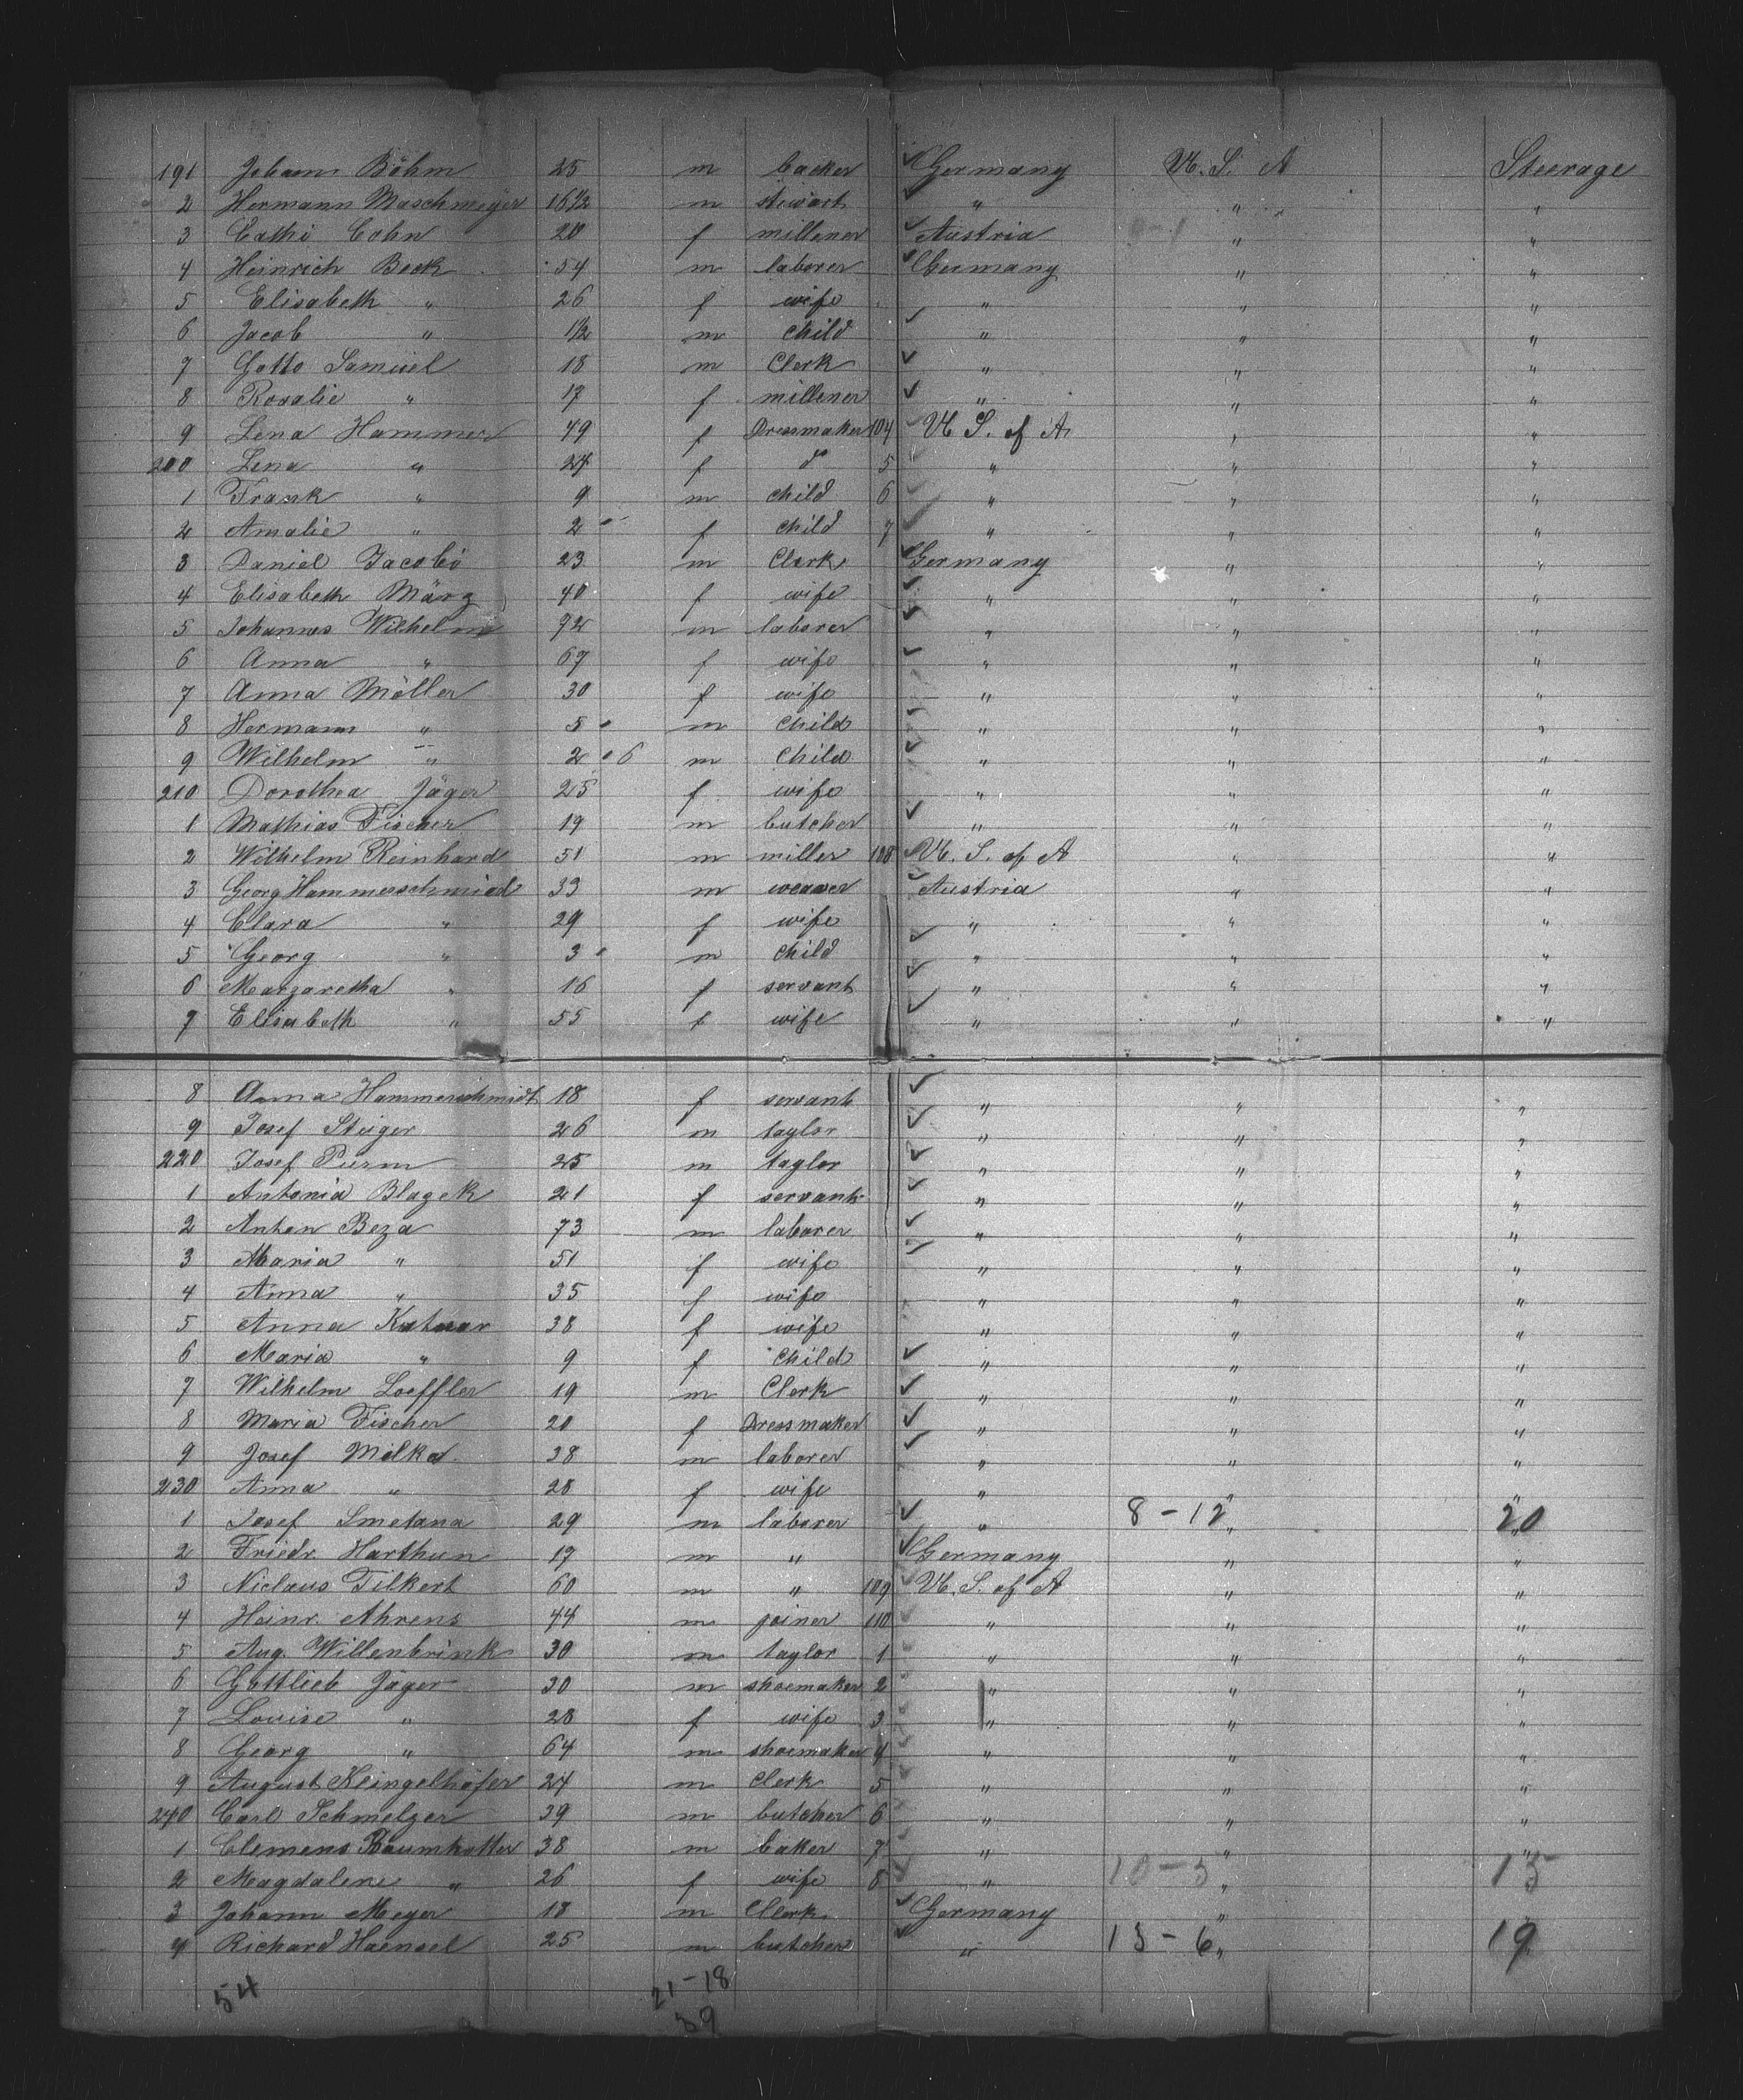 191 Johann Böhm 25 m backer Germany U. S. A Steerage
2 Hermann Maschmeyer 16 1/2 m stewart " " "
3 Cathi Cohn 20 f millener Austria " "
4 Heinrich Beck 54 m laborer Germany " "
5 Elisabeth " 26 f wife " " "
6 Jacob " 1/2 m child " " "
7 Gotto Samuel 18 m Clerk " " "
8 Rosalie " 17 f millener " " "
9 Lena Hammer 49 f Dressmaker 104 U. S. of A. " "
200 Lena " 24 f do 5 " " "
1 Frank " 9 m child 6 " " "
2 Amalie " 2 f child 7 " " "
3 Daniel Jacobi 23 m Clerk Germany " "
4 Elisabeth März 40 f wife " " "
5 Johannes Wilhelm 72 m laborer " " "
6 Anna " 67 f wife " " "
7 Anna Möller 30 f wife " " "
8 Hermann " 5 m Child " " "
9 Wilhelm " 2 6 m Child " " "
210 Dorothea Jäger 25 f wife " " "
1 Mathias Fischer 19 m butcher " " "
2 Wilhelm Reinhard 51 m miller 108 U. S. of A " "
3 Georg Hammerschmied 33 m weaver Austria " "
4 Clara " 29 f wife " " "
5 Georg " 3 m child " " "
6 Margaretha " 16 f servant " " "
7 Elisabeth " 55 f wife " " "
8 Anna Hammerschmidt 18 f servant " " "
9 Josef Steiger 26 m taylor " " "
220 Josef Purm 25 m taylor " " "
1 Antonia Blazek 21 f servant " " "
2 Anton Beza 73 m laborer " " "
3 Maria " 51 f wife " " "
4 Anna " 35 f wife " " "
5 Anna 38 f wife " " "
6 Maria " 9 f Child " " "
7 Wilhelm Loeffler 19 m Clerk " " "
8 Maria Fischer 20 f Dressmaker " " "
9 Josef Milka 38 m laborer " " "
230 Anna " 28 f wife " " "
1 Josef Smetana 29 m laborer " 8 - 12 " 20 "
2 Friedr. Harthun 17 m " Germany " "
3 Niclaus Filkert 60 m " 109 U. S. of A " "
4 Heinr. Ahrens 44 m joiner 110 " " "
5 Aug. Willenbrink 30 m taylor 1 " " "
6 Gottlieb Jäger 30 m shoemaker 2 " " "
7 Louise " 28 f wife 3 " " "
8 Georg " 64 m shoemaker 4 " " "
9 August Klingelhöfer 24 m Clerk 5 " " "
240 Carl Schmelzer 39 m butcher 6 " " "
1 Clemens Baumkotter 38 m baker 7 " " "
2 Magdalene " 26 f wife 8 " 10 - 5 " 15
3 Johann Meyer 18 m Clerk Germany " "
4 Richard Haensel 25 m butcher " 13 - 6 " 19
54 21 - 18
39